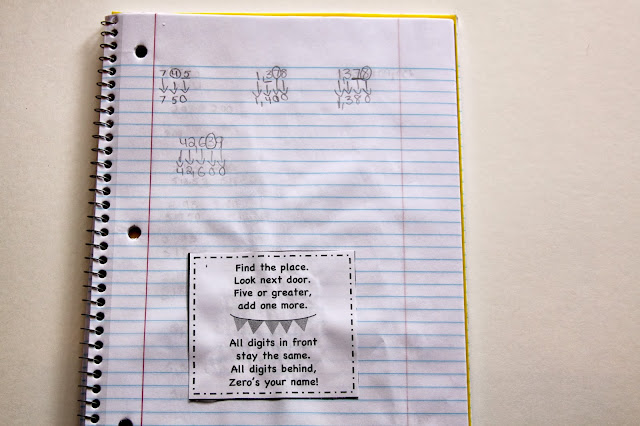 1,378 1,378
750 1,400 1,380
42,600
Find the place.
Look next door.
Five or greater,
add one more.
All digits in front
stay the same.
All digits behind,
Zero's your name!